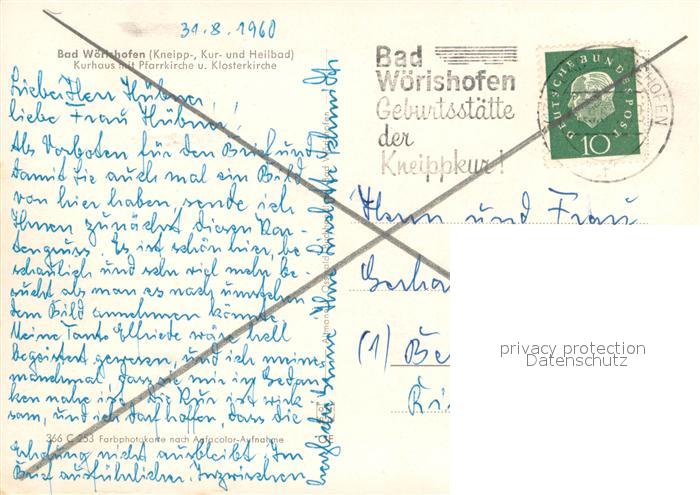 31.8.1960
Bad Wörishofen (Kneipp-, Kur- und Heilbad)
Kurhaus mit Pfarrkirche u. Klosterkirche
Lieber Herr Hübner,
liebe Frau Hübner!
Als Vorboten für den Brief und
damit Sie auch mal ein Bild
von hier haben, sende ich
Ihnen zunächst diesen Kar-
tengruss. Es ist schön hier, be-
schaulich und sehr viel mehr be-
sucht als man es nach
dem Bild annehmen könnte.
Meine Tante Elfriede wäre hell
begeistert gewesen, und ich meine
manchmal, dass sie mir in Gedan-
ken nahe ist. Die Kur ist wirk-
sam, und ich darf hoffen, dass die
366 C 253 Farbphotokarte nach Agfacolor-Aufnahme
Erholung nicht ausbleibt. Im
Brief ausführlicher. Inzwischen
herzliche Ihre Schmidt
Bad
Wörishofen
Geburtsstätte
der
Kneippkur!
DEUTSCHE BUNDESPOST
10
Herrn und Frau
(1) Be
privacy protection
Datenschutz